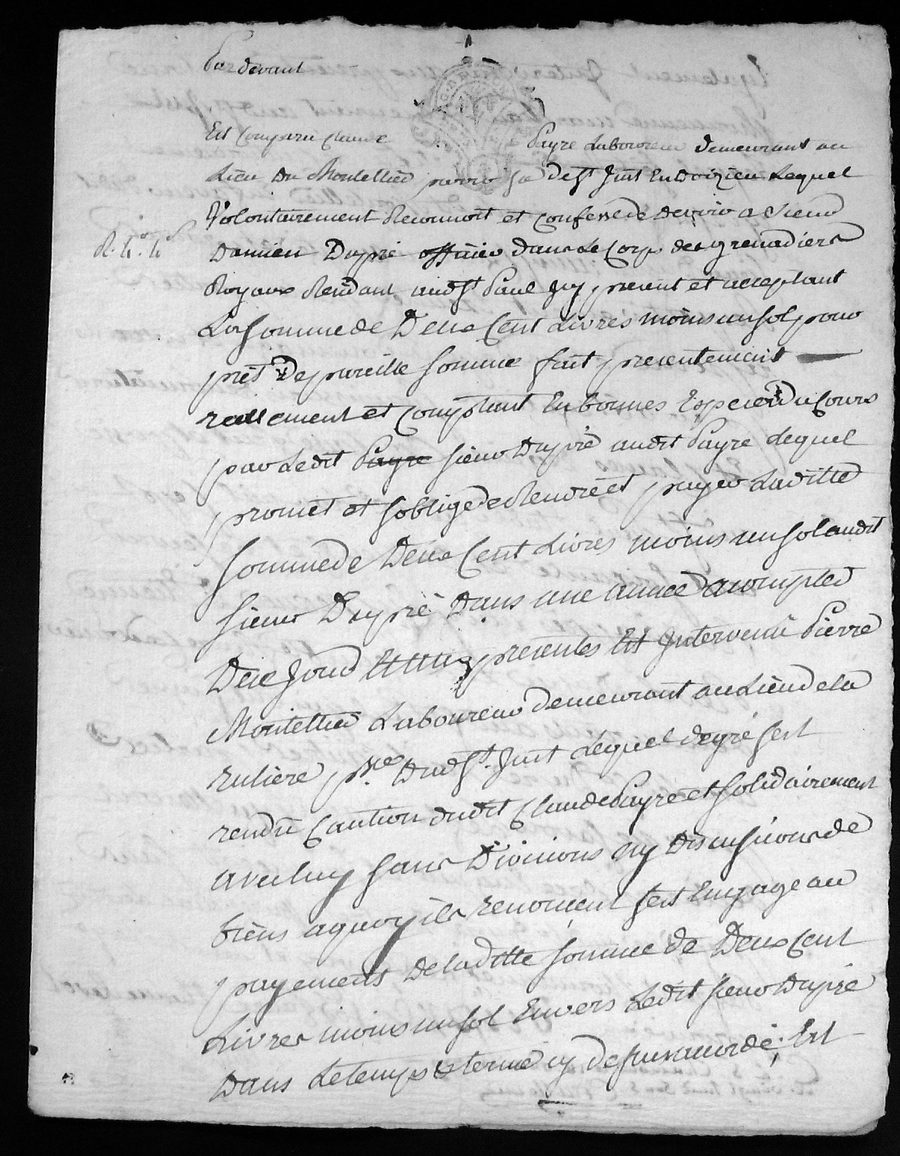 Pardevant
Est Comparu Claude Payre Laboureur demeurant au
Lieu Du Montellier parroisse de St Just En Doizieu Lequel
Volontairement Reconnoit et Confesse devoir a sieur
R. 4. 4s.
Damien Dupré officier dans Le Corps des grenadiers
Royaux Residant St Paul present et acceptant
La somme de Deux Cent Livres moins un sol pour
prest De pareille somme fait presentement
reallement et comptant En bonnes Especes Du Cours
par Ledit Payre sieur Dupré audit Payre Lequel
promet et soblige de Rendre et payer Laditte
somme de Deux Cent Livres moins un sol audit
sieur Dupré Dans une année acomplie
De ce jour presentes Est Intervenu Pierre
Montellier Laboureur demeurant au Lieu de la
ruliere psse Dudt St Just Lequel de gré sest
rendu Caution dudit Claude Payre et solidairement
avec luy sans Divisions ny Discussions de
biens a quoy ils renoncent sest Engage au
payement De laditte somme de Deux Cent
Livres moins un sol Envers Ledit sieur Dupré
Dans Le temps & terme cy dessus accordé ; Est